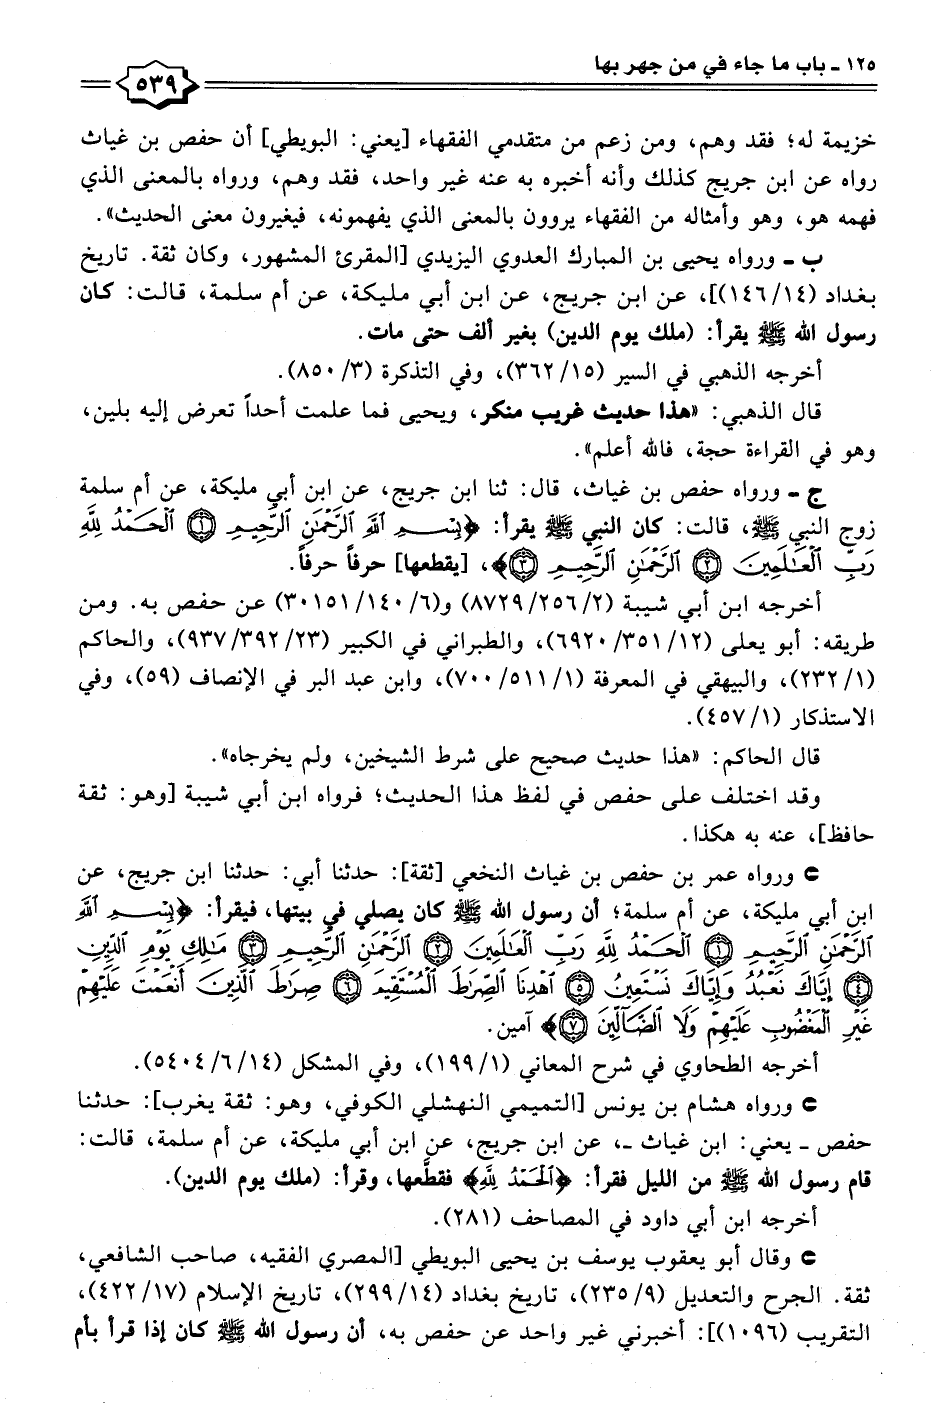 ١٢٥ ـ باب ما جاء في من جهر بها
٥٣٩
خزيمة له؛ فقد وهم، ومن زعم من متقدمي الفقهاء [يعني: البويطي] أن حفص بن غياث
رواه عن ابن جريج كذلك وأنه أخبره به عنه غير واحد، فقد وهم، ورواه بالمعنى الذي
فهمه هو، وهو وأمثاله من الفقهاء يروون بالمعنى الذي يفهمونه، فيغيرون معنى الحديث».
ب ـ ورواه يحيى بن المبارك العدوي اليزيدي [المقرئ المشهور، وكان ثقة. تاريخ
بغداد (١٤٦/١٤)]، عن ابن جريج، عن ابن أبي مليكة، عن أم سلمة، قالت: كان
رسول الله ﷺ يقرأ: (ملك يوم الدين) بغير ألف حتى مات.
أخرجه الذهبي في السير (٣٦٢/١٥)، وفي التذكرة (٨٥٠/٣).
قال الذهبي: «هذا حديث غريب منكر، ويحيى فما علمت أحداً تعرض إليه بلين،
وهو في القراءة حجة، فالله أعلم».
ج ـ ورواه حفص بن غياث، قال: ثنا ابن جريج، عن ابن أبي مليكة، عن أم سلمة
زوج النبي ﷺ، قالت: كان النبي ﷺ يقرأ: ﴿بِسْمِ اللَّهِ الرَّحْمَٰنِ الرَّحِيمِ ١ الْحَمْدُ لِلَّهِ
رَبِّ الْعَالَمِينَ ٢ الرَّحْمَٰنِ الرَّحِيمِ ٣﴾، [يقطعها] حرفاً حرفاً.
أخرجه ابن أبي شيبة (٨٧٢٩/٢٥٦/٢) و(٣٠١٥١/١٤٠/٦) عن حفص به. ومن
طريقه: أبو يعلى (٦٩٢٠/٣٥١/١٢)، والطبراني في الكبير (٩٣٧/٣٩٢/٢٣)، والحاكم
(٢٣٢/١)، والبيهقي في المعرفة (٧٠٠/٥١١/١)، وابن عبد البر في الإنصاف (٥٩)، وفي
الاستذكار (٤٥٧/١).
قال الحاكم: «هذا حديث صحيح على شرط الشيخين، ولم يخرجاه».
وقد اختلف على حفص في لفظ هذا الحديث؛ فرواه ابن أبي شيبة [وهو: ثقة
حافظ]، عنه به هكذا.
ورواه عمر بن حفص بن غياث النخعي [ثقة]: حدثنا أبي: حدثنا ابن جريج، عن
ابن أبي مليكة، عن أم سلمة؛ أن رسول الله ﷺ كان يصلي في بيتها، فيقرأ: ﴿بِسْمِ اللَّهِ
الرَّحْمَٰنِ الرَّحِيمِ ١ الْحَمْدُ لِلَّهِ رَبِّ الْعَالَمِينَ ٢ الرَّحْمَٰنِ الرَّحِيمِ ٣ مَالِكِ يَوْمِ الدِّينِ
٤ إِيَّاكَ نَعْبُدُ وَإِيَّاكَ نَسْتَعِينُ ٥ اهْدِنَا الصِّرَاطَ الْمُسْتَقِيمَ ٦ صِرَاطَ الَّذِينَ أَنْعَمْتَ عَلَيْهِمْ
غَيْرِ الْمَغْضُوبِ عَلَيْهِمْ وَلَا الضَّالِّينَ ٧﴾ آمين.
أخرجه الطحاوي في شرح المعاني (١٩٩/١)، وفي المشكل (٥٤٠٤/٦/١٤).
ورواه هشام بن يونس [التميمي النهشلي الكوفي، وهو: ثقة يغرب]: حدثنا
حفص ـ يعني: ابن غياث ـ، عن ابن جريج، عن ابن أبي مليكة، عن أم سلمة، قالت:
قام رسول الله ﷺ من الليل فقرأ: ﴿الْحَمْدُ لِلَّهِ﴾ فقطَّعها، وقرأ: (ملك يوم الدين).
أخرجه ابن أبي داود في المصاحف (٢٨١).
وقال أبو يعقوب يوسف بن يحيى البويطي [المصري الفقيه، صاحب الشافعي،
ثقة. الجرح والتعديل (٢٣٥/٩)، تاريخ بغداد (٢٩٩/١٤)، تاريخ الإسلام (٤٢٢/١٧)،
التقريب (١٠٩٦)]: أخبرني غير واحد عن حفص به، أن رسول الله ﷺ كان إذا قرأ بأم